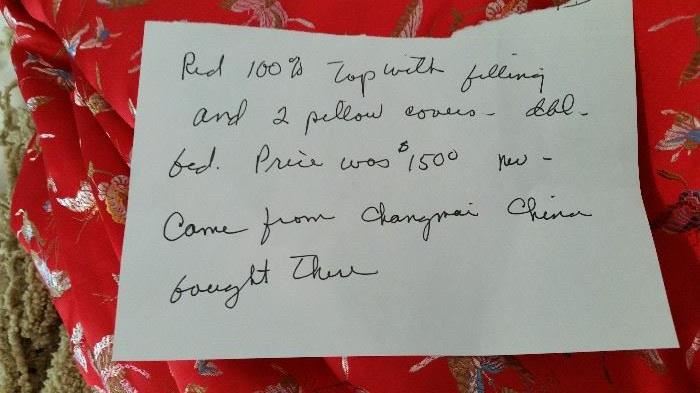 Red 100% Top with filling
and 2 pillow covers - dbl -
bed. Price was $1500 new -
Came from Changmai China
bought There